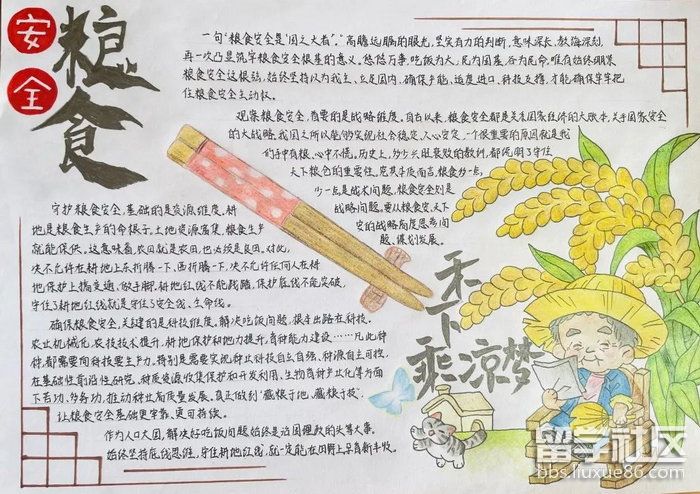 粮食
安全
一句“粮食安全是‘国之大者’。”高瞻远瞩的眼光,坚实有力的判断,意味深长,教诲深刻,
再一次凸显筑牢粮食安全根基的意义。悠悠万事,吃饭为大,民为国基,谷为民命。唯有始终绷紧
粮食安全这根弦,始终坚持以我为主、立足国内、确保产能、适度进口、科技支撑,才能确保牢牢把
住粮食安全主动权。
观察粮食安全,首要的是战略维度。自古以来,粮食安全都是关乎国家经济的大账本,关乎国家安全
的大战略。我国之所以能够实现社会稳定、人心安定,一个很重要的原因就是我
们手中有粮、心中不慌。历史上,多少兴衰衰败的教训,都说明了守住
天下粮仓的重要性。究其本质而言,粮食多一点,
少一点是战术问题,粮食安全则是
战略问题。要从粮食安、天下
安的战略高度思考问
题、谋划发展。
守护粮食安全,基础的是资源维度。耕
地是粮食生产的命根子,土地资源富集,粮食生产
就能保供。这意味着,农田就是农田,也必须是良田。对此,
决不允许在耕地上东折腾一下、西折腾一下,决不允许任何人在耕
地保护上搞变通、做手脚,耕地红线不能践踏,保护底线不能突破,
守住了耕地红线就是守住了安全线、生命线。
确保粮食安全,关键的是科技维度。解决吃饭问题,根本出路在科技。
农业机械化、农技技术提升、耕地保护和地力提升、育种能力建设……凡此种
种,都需要向科技要生产力。特别是需要实现种业科技自立自强、种源自主可控,
在基础性前沿性研究、种质资源收集保护和开发利用、生物育种产业化等方面
下苦功、多务功,推动种业高质量发展,真正做到“藏粮于地、藏粮于技”,
让粮食安全基础更牢靠、更可持续。
作为人口大国,解决好吃饭问题始终是治国理政的头等大事。
始终坚持底线思维,守住耕地红线,就一定能在田畴上孕育新丰收。
禾下乘凉梦
留学社区
bbs.liuxue86.com